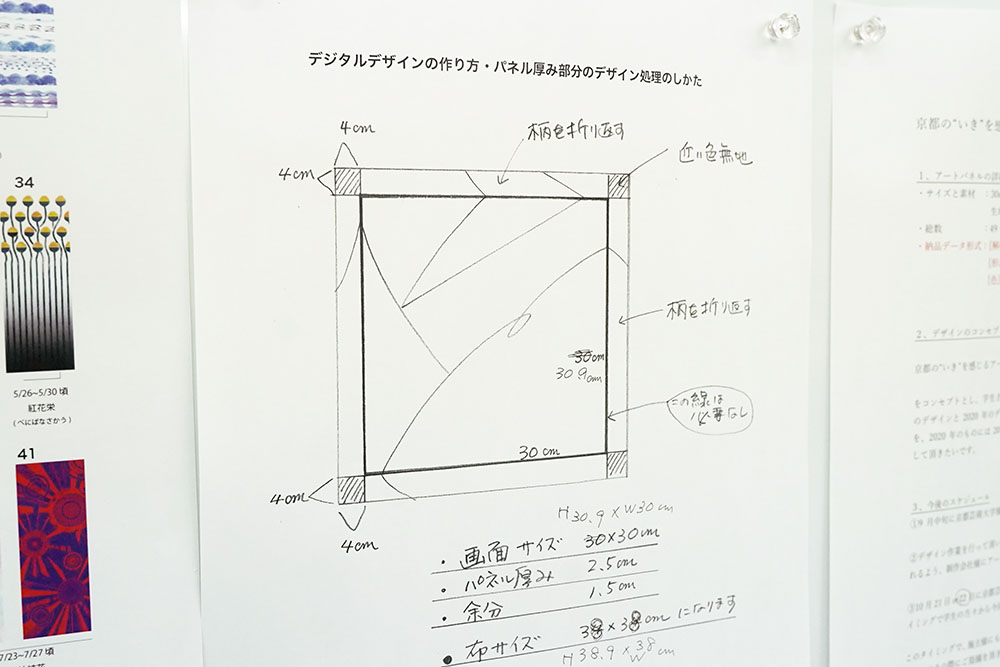 34
5/26~5/30 頃
紅花栄
(べにばなさかう)
41
7/23~7/27 頃
デジタルデザインの作り方・パネル厚み部分のデザイン処理のしかた
4cm
柄を折り返す
近い色無地
4cm
柄を折り返す
30cm
30.9cm
この線は
必要なし
30cm
4cm
4cm
H30.9×W30cm
・画面サイズ 30×30cm
・パネル厚み 2.5cm
・余分 1.5cm
・布サイズ 38×38cmになります
H38.9×38cm
W
京都の"いき"を
1、アートパネルの
・サイズと素材 :30
・総数 :49
・納品データ形式:
2、デザインのコンセプ
京都の"いき"を感じるアー
をコンセプトとし、学生
のデザインと 2020 年の
を、2020 年のものには 20
して頂きたいです。
3、今後のスケジュール
①9 月中旬に京都芸術大学
②デザイン作業を行って
れるよう、制作会社様にアー
③10月21日
イミングで学生の
このタイミングで、